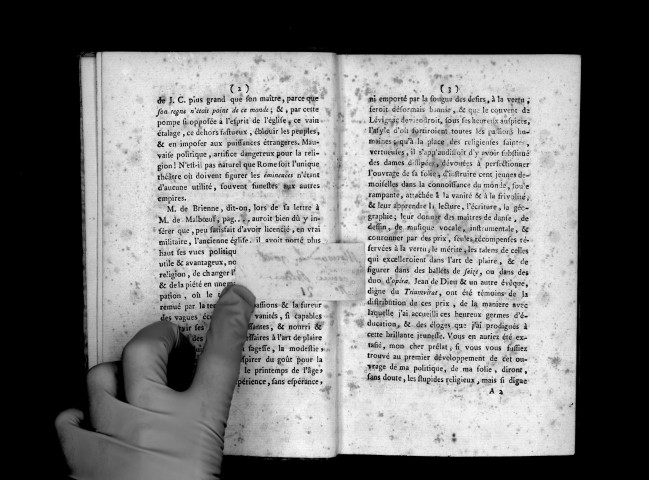 ( 2 )
de J. C. plus grand que ſon maître, parce que
ſon regne n'étoit point de ce monde; &, par cette
pompe ſi oppoſée à l'eſprit de l'égliſe, ce vain
étalage, ce dehors faſtueux, éblouir les peuples,
& en impoſer aux puiſſances étrangeres. Mau-
vaiſe politique, artifice dangereux pour la reli-
gion! N'eſt-il pas naturel que Rome ſoit l'unique
théâtre où doivent figurer les éminences n'étant
d'aucune utilité, ſouvent funeſtes aux autres
empires.
M. de Brienne, dit-on, lors de ſa lettre à
M. de Malbœuf, pag...., auroit bien dû y in-
ſérer que, peu ſatisfait d'avoir licencié, en vrai
militaire, l'ancienne égliſe, il avoit porté plus
haut ſes vues politiqu
utile & avantageux, no
religion, de changer l'
& de la piété en un
pation, où le
remué par la ſſions & la fureur
des vagues vanités, ſi capables
ſes ſantes, & nourri &
des ſſaires à l'art de plaire
ſageſſe, la modeſtie
ſpirer du goût pour la
le printemps de l'âge,
périence, ſans eſpérance,
( 3 )
ni emporté par la fougue des deſirs, à la vertu,
ſeroit déſormais bannie, & que le couvent de
Lévignac deviendroit, ſous ſes heureux auſpices,
l'aſyle d'où ſortiroient toutes les paſſions hu-
maines; qu'à la place des religieuſes ſaintes,
vertueuſes, il s'applaudiſſoit d'y avoir ſubſtitué
des dames diſſipées, dévouées à perfectionner
l'ouvrage de ſa folie, d'inſtruire cent jeunes de-
moiſelles dans la connoiſſance du monde, foule
rampante, attachée à la vanité & à la frivolité,
& leur apprendre la lecture, l'écriture, la géo-
graphie; leur donner des maîtres de danſe, de
deſſin, de muſique vocale, inſtrumentale, &
couronner par des prix, ſeules récompenſes ré-
ſervées à la vertu, le mérite, les talens de celles
qui excelleroient dans l'art de plaire, & de
figurer dans des ballets de ſeize, ou dans des
duo d'opéra. Jean de Dieu & un autre évêque,
digne du Triumvirat, ont été témoins de la
diſtribution de ces prix, de la maniere avec
laquelle j'ai accueilli ces heureux germes d'é-
ducation, & des éloges que j'ai prodigués à
cette brillante jeuneſſe. Vous en auriez été ex-
taſié, mon cher prélat, ſi vous vous fuſſiez
trouvé au premier développement de cet ou-
vrage de ma politique, de ma folie, diront,
ſans doute, les ſtupides religieux, mais ſi digne
A 2